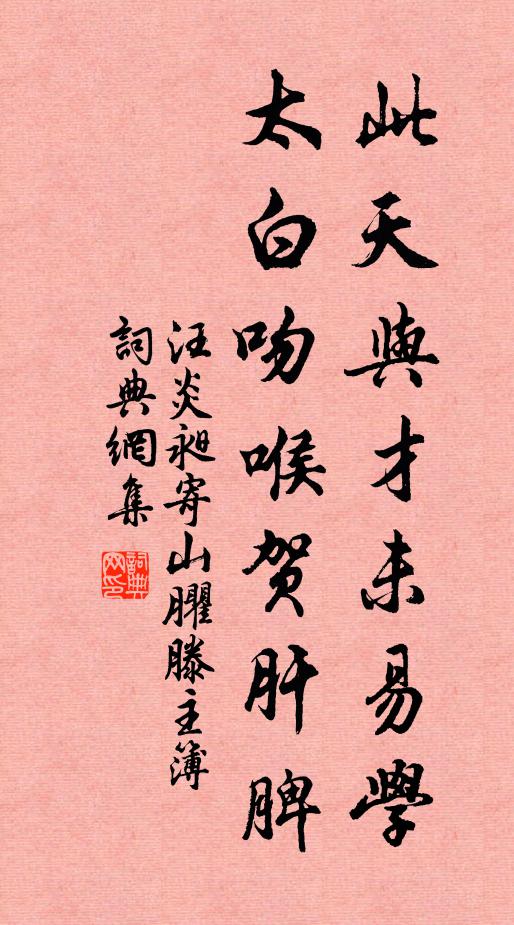 此天與才未易學
太白吻喉賀肝脾
汪炎昶寄山臞滕主簿
詞典網集
詞典網印